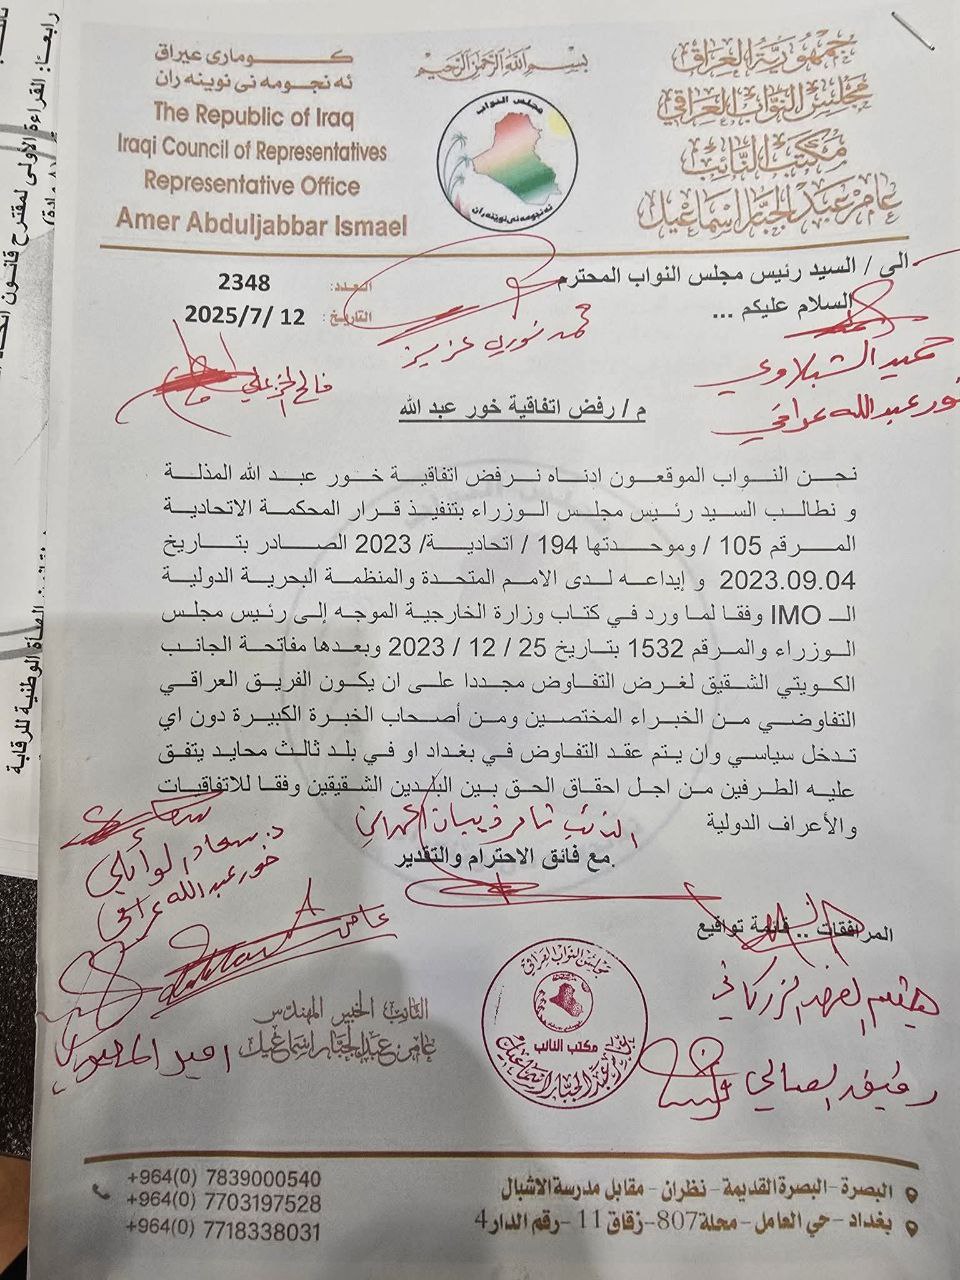 بسم الله الرحمن الرحيم
جمهورية العراق
مجلس النواب العراقي
مكتب النائب
عامر عبد الجبار اسماعيل
كـــومارى عيراق
ئه نجومه نى نوينه ران
The Republic of Iraq
Iraqi Council of Representatives
Representative Office
Amer Abduljabbar Ismael
مجلس النواب
ئه نجومه نى نوينه ران
العدد: 2348
التاريخ: 12 /7/2025
الى / السيد رئيس مجلس النواب المحترم
السلام عليكم ...
محمد نوري عزيز
حميد الشبلاوي
نور عبد الله عراقي
فالح الخزعلي
م / رفض اتفاقية خور عبد الله
نحن النواب الموقعون ادناه نرفض اتفاقية خور عبد الله المذلة
و نطالب السيد رئيس مجلس الوزراء بتنفيذ قرار المحكمة الاتحادية
المرقم 105 / وموحدتها 194 / اتحادية/ 2023 الصادر بتاريخ
2023.09.04 و إيداعه لدى الامم المتحدة والمنظمة البحرية الدولية
الـ IMO وفقا لما ورد في كتاب وزارة الخارجية الموجه إلى رئيس مجلس
الوزراء والمرقم 1532 بتاريخ 25 / 12 / 2023 وبعدها مفاتحة الجانب
الكويتي الشقيق لغرض التفاوض مجددا على ان يكون الفريق العراقي
التفاوضي من الخبراء المختصين ومن أصحاب الخبرة الكبيرة دون اي
تدخل سياسي وان يتم عقد التفاوض في بغداد او في بلد ثالث محايد يتفق
عليه الطرفين من اجل احقاق الحق بين البلدين الشقيقين وفقا للاتفاقيات
والأعراف الدولية
النائب ثامر ذيبان الحمداني
مع فائق الاحترام والتقدير.
د. سعاد الوائلي
خور عبد الله عراقي
المرافقات .. قائمة تواقيع
هيثم الفهد الزركاني
رفيق الصالحي
النائب الخبير المهندس
عامر عبد الجبار اسماعيل
امير المعموري
مجلس النواب العراقي
مكتب النائب
عامر عبد الجبار اسماعيل
البصرة - البصرة القديمة - نظران - مقابل مدرسة الاشبال
بغداد - حي العامل - محلة 807 - زقاق 11 - رقم الدار 4
+964(0) 7839000540
+964(0) 7703197528
+964(0) 7718338031
رابعا: القراءة الأولى لمقترح قانون